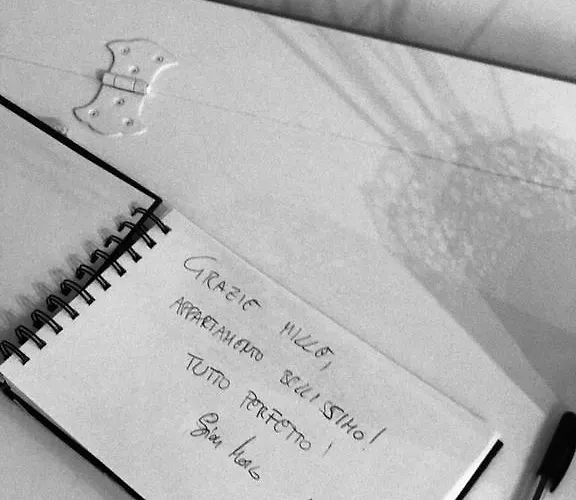 GRAZIE MILLE,
APPARTAMENTO BELLISSIMO!
TUTTO PERFETTO!